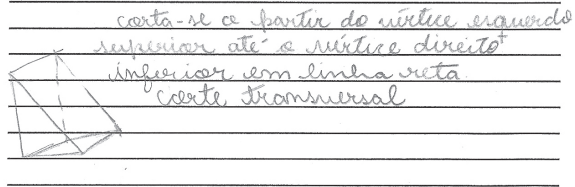 corta-se a partir do vértice esquerdo
superior até o vértice direito
inferior em linha reta
corte transversal